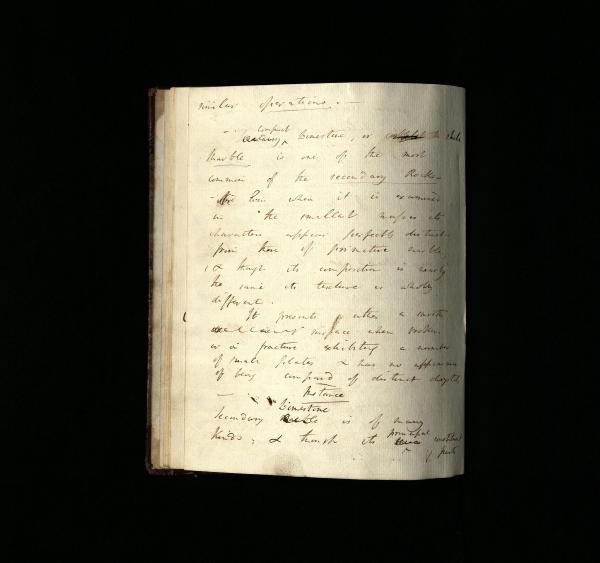 similar operations. —
— compact
Limestone, or the shell
Marble is one of the most
common of the secondary Rocks —
— Even when it is examined
in the smallest masses its
characters appear perfectly distinct
from those of primitive marble
& though its composition is nearly
the same its texture is wholly
different.
It presents either a smooth
surface when broken
or a fracture exhibiting a number
of small plates & has no appearance
of being composed of distinct crystals
— Instance
Limestone
Secondary is of many
kinds; & though its principal constituent
parts